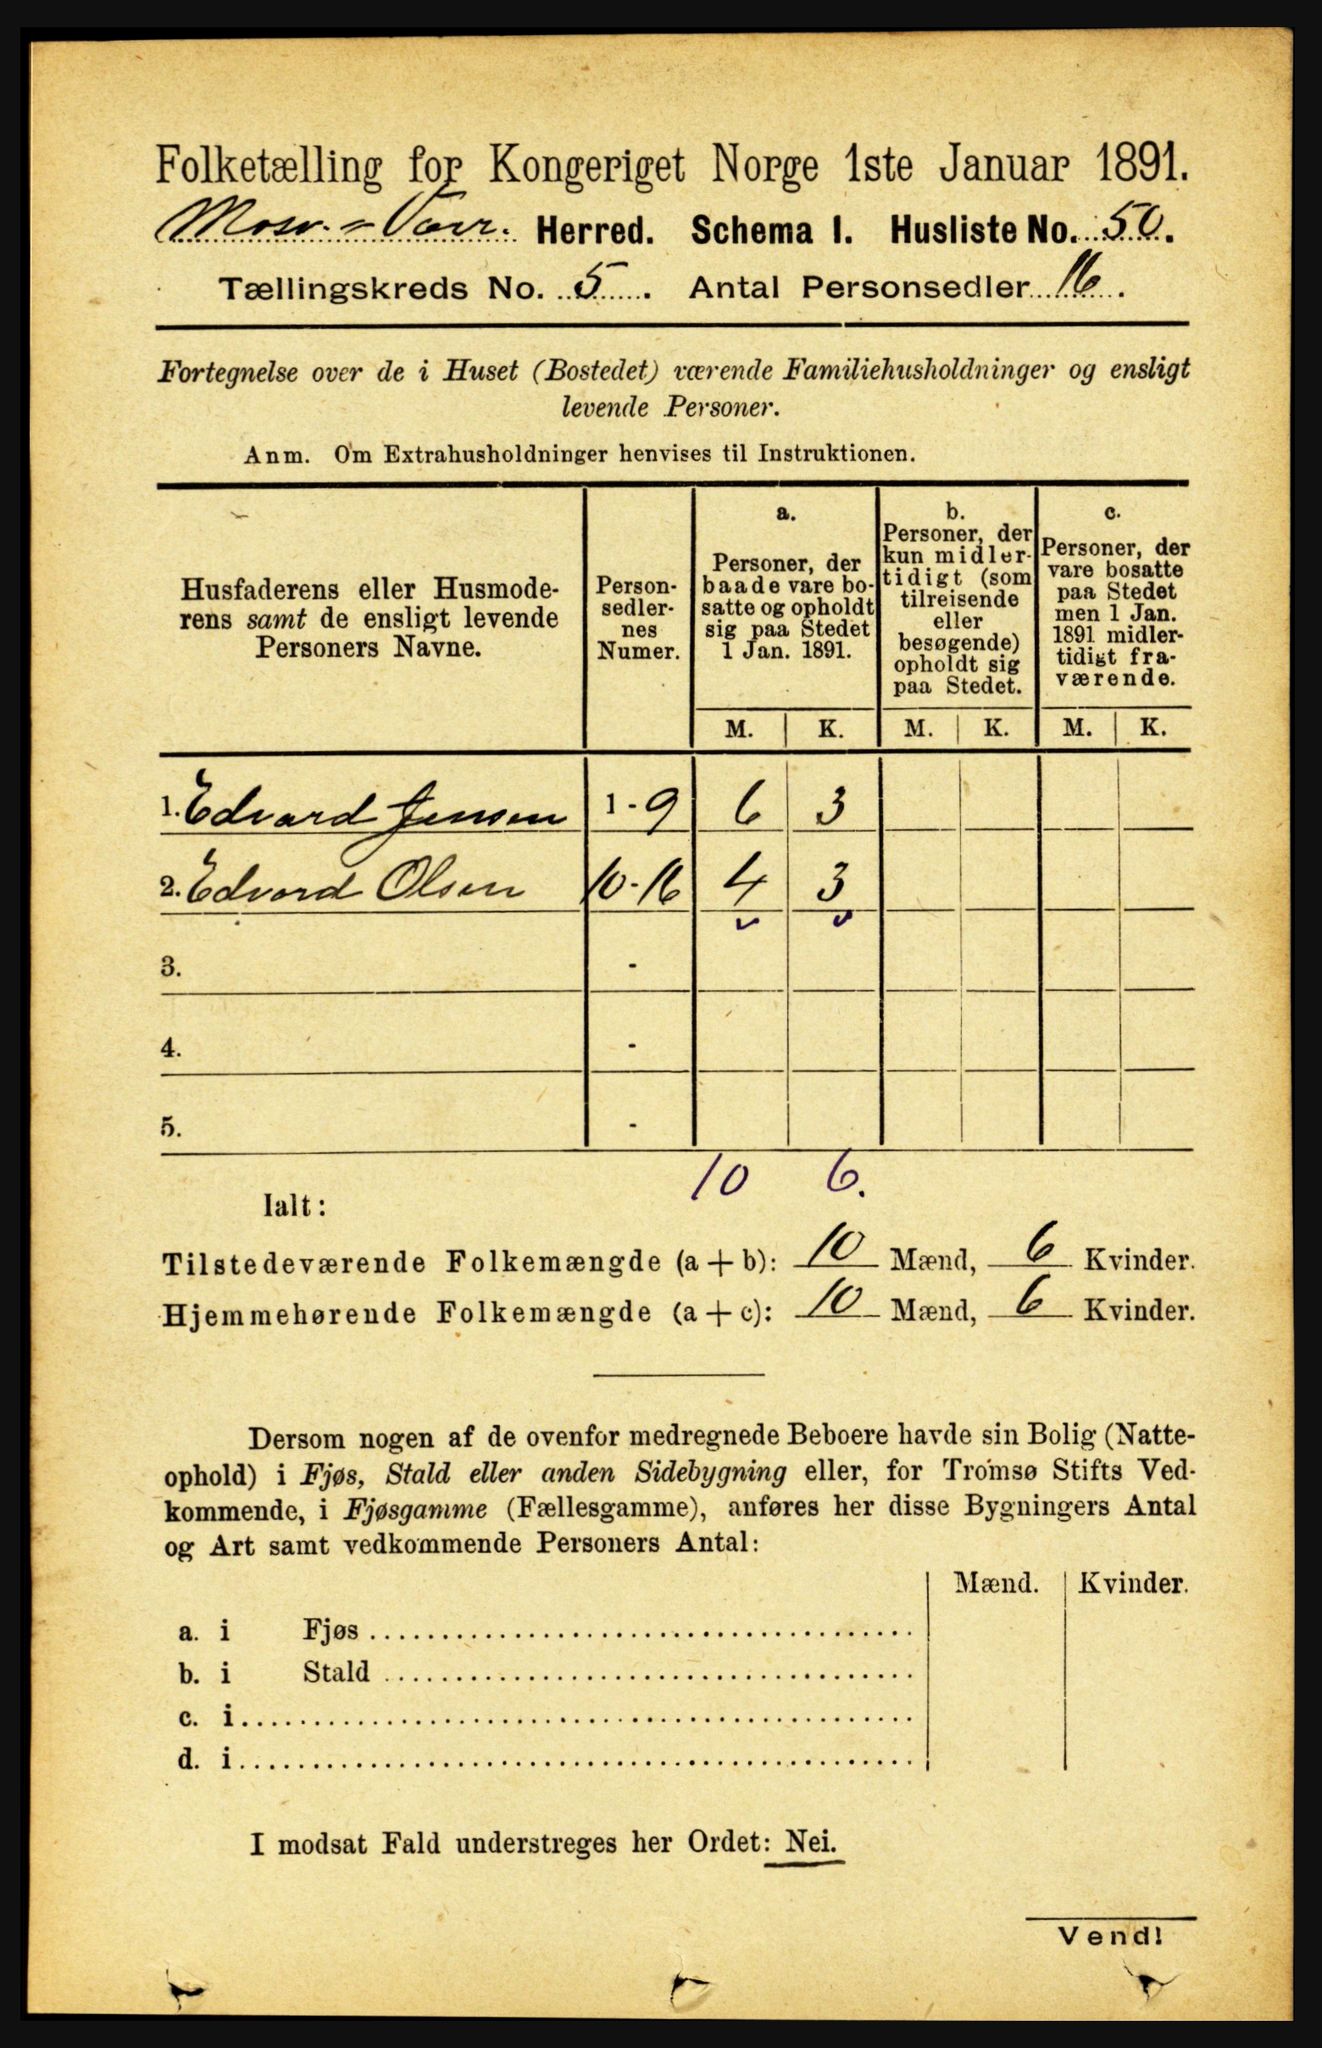 Folketælling for Kongeriget Norge 1ste Januar 1891.
Mosv. - Varr. Herred. Schema I. Husliste No. 50.
Tællingskreds No. 5. Antal Personsedler 16.
Fortegnelse over de i Huset (Bostedet) værende Familiehusholdninger og ensligt
levende Personer.
Anm. Om Extrahusholdninger henvises til Instruktionen.
Husfaderens eller Husmode-
rens samt de ensligt levende
Personers Navne.
Person-
sedler-
nes
Numer.
a.
Personer, der
baade vare bo-
satte og opholdt
sig paa Stedet
1 Jan. 1891.
b.
Personer, der
kun midler-
tidigt (som
tilreisende
eller
besøgende)
opholdt sig
paa Stedet.
c.
Personer, der
vare bosatte
paa Stedet
men 1 Jan.
1891 midler-
tidigt fra-
værende.
M. K. M. K. M. K.
1. Edvard Jensen 1 - 9 6 3
2. Edvard Olsen 10 - 16 4 3
3. -
4. -
5. -
10 6.
Ialt:
Tilstedeværende Folkemængde (a + b): 10 Mænd, 6 Kvinder.
Hjemmehørende Folkemængde (a + c): 10 Mænd, 6 Kvinder.
Dersom nogen af de ovenfor medregnede Beboere havde sin Bolig (Natte-
ophold) i Fjøs, Stald eller anden Sidebygning eller, for Tromsø Stifts Ved-
kommende, i Fjøsgamme (Fællesgamme), anføres her disse Bygningers Antal
og Art samt vedkommende Personers Antal:
Mænd. Kvinder.
a. i Fjøs
b. i Stald
c. i
d. i
I modsat Fald understreges her Ordet: Nei.
Vend!